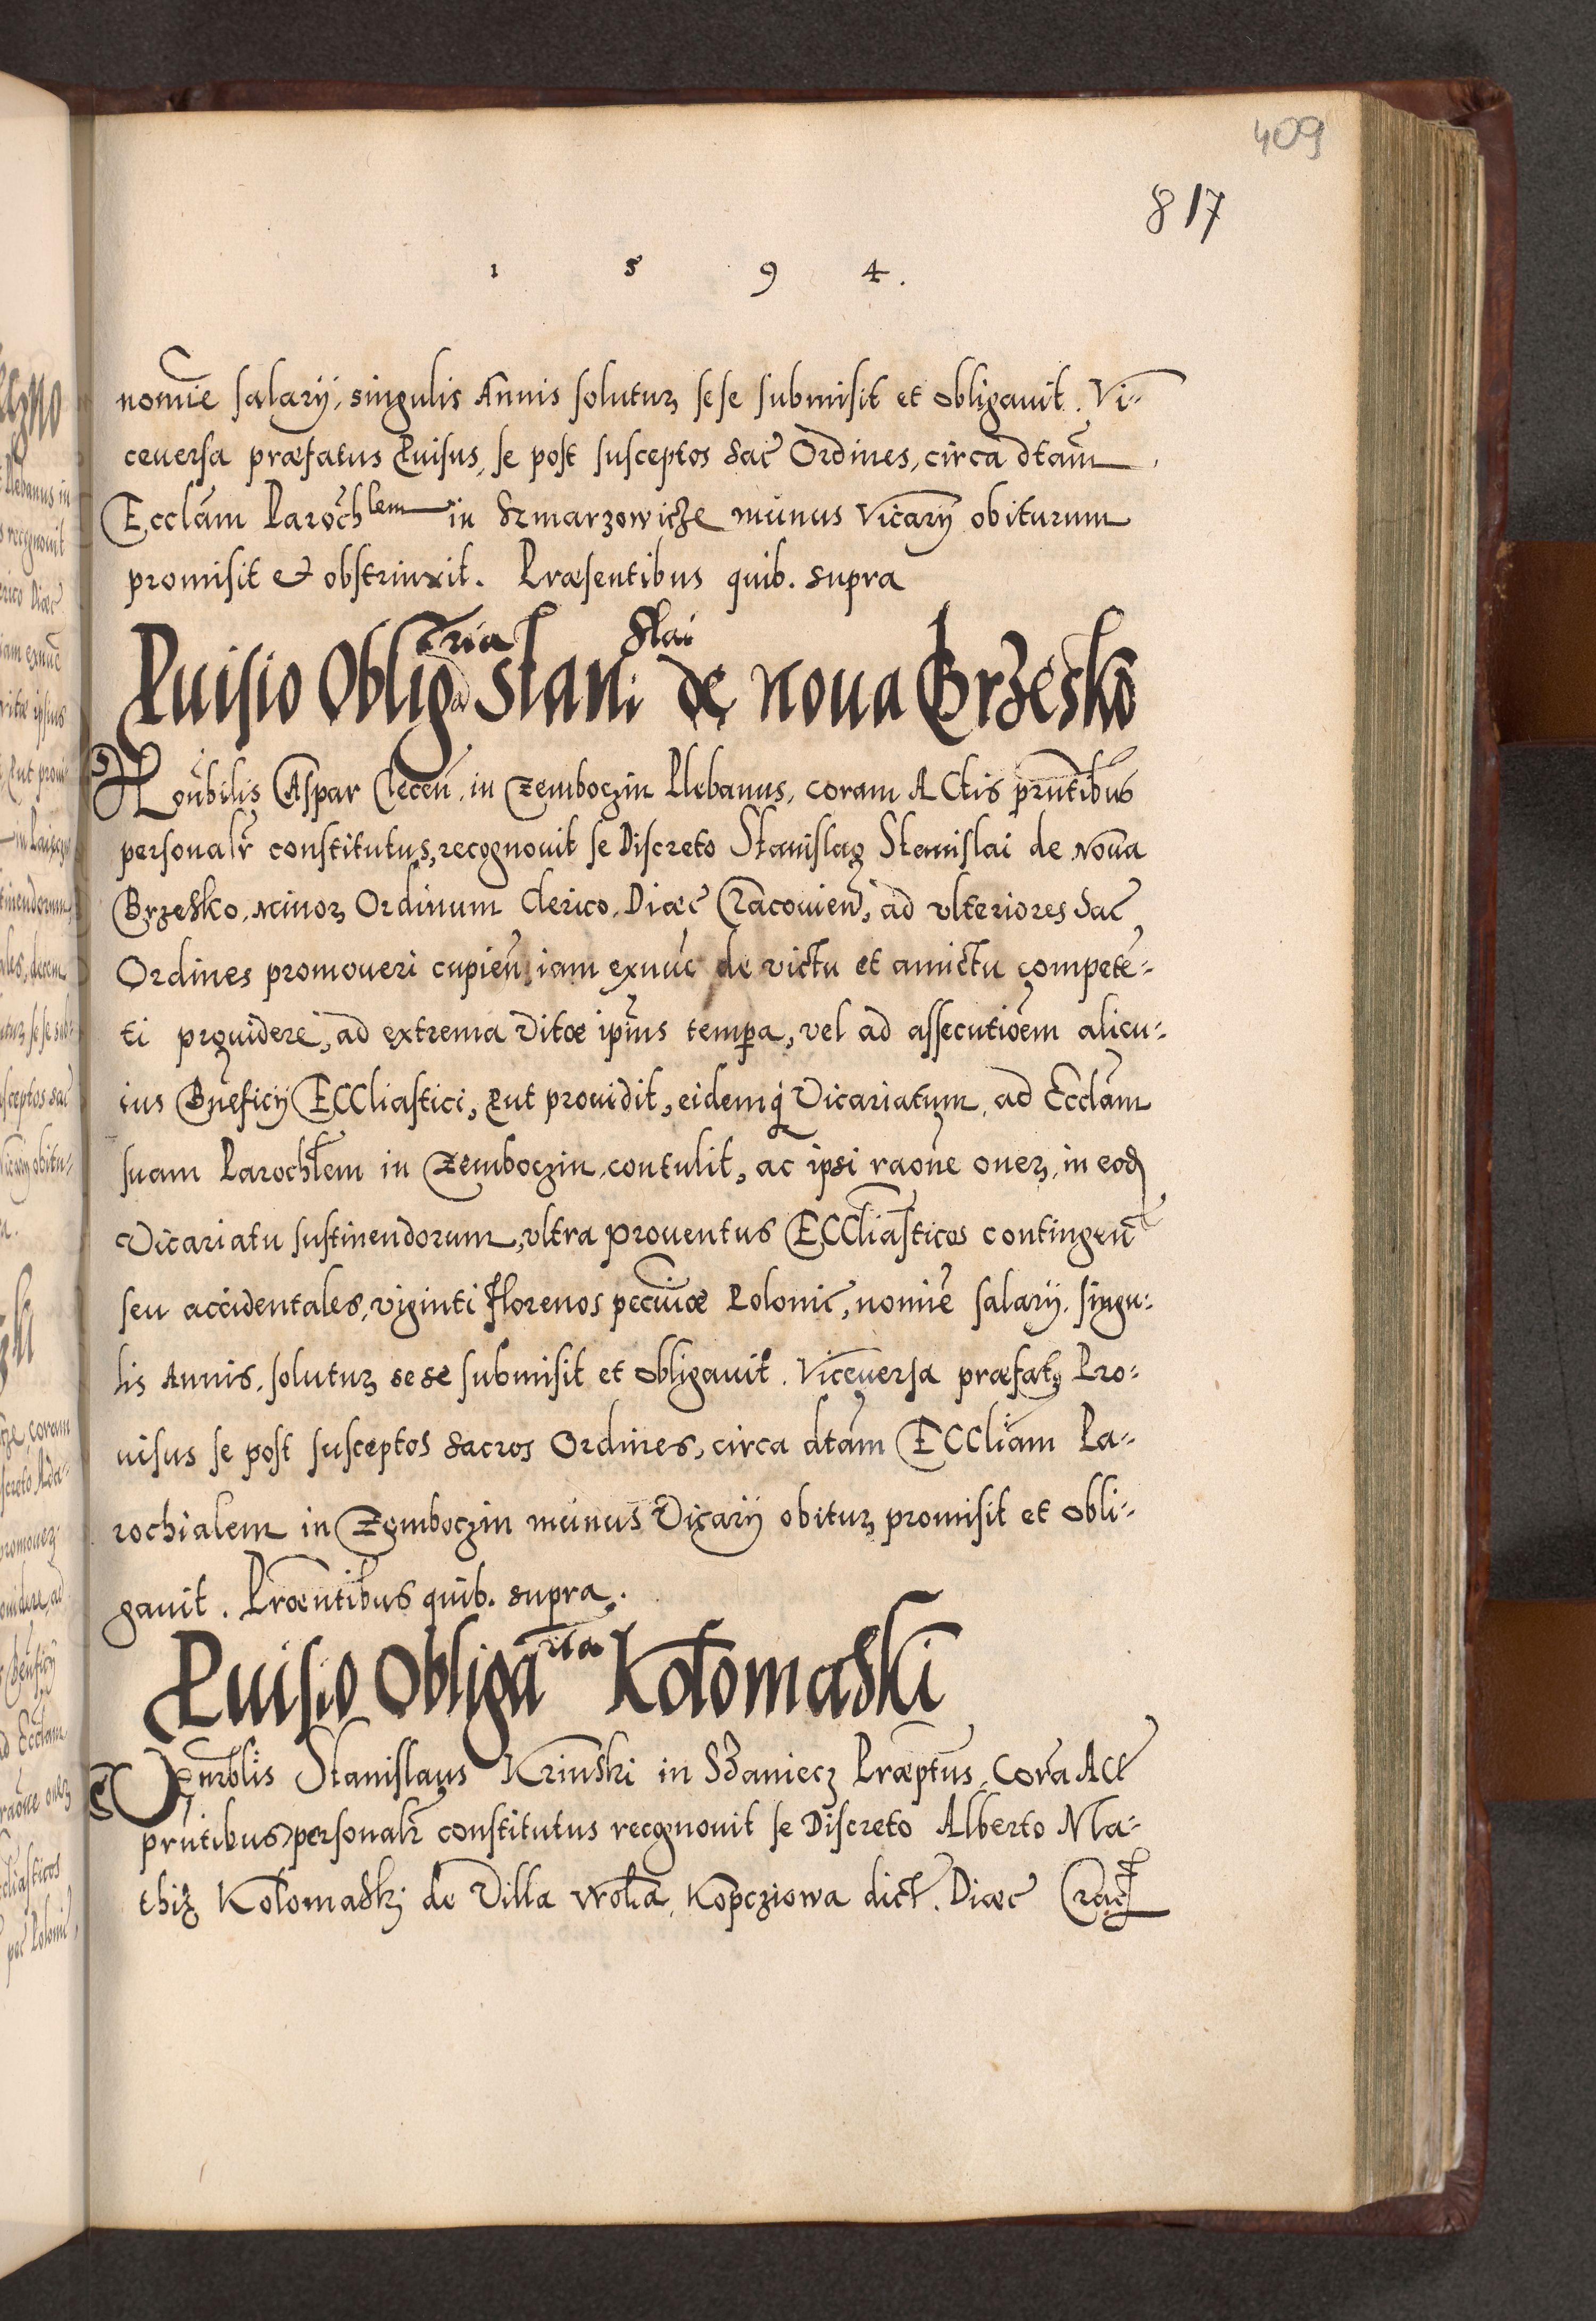 409
817
1 5 9 4.
nomīe salarij, singulis Annis soluturꝫ sese submisit et obligauit. Vi-
ceuersa præfatus Ꝓuisus, se post susceptos Sac̄ Ordines, circa dtam̄
Eccl̄am Paroch̄lem in Szmarzowicze munus Vicarij obiturum
promisit et obstrinxit. Præsentibus quib. supra
Ꝓuisio Obligaͭͬͥͣ Stani Slai de Noua Brzesko
Honūbilis Caspar Clecen̄, in Zemboczin Plebanus, coram Actis prn̄tibus
personalr̄ constitutus, recognouit se Discreto Stanislao Stanislai de Noua
Brzesko, Minoꝝ Ordinum Clerico, Diœc̄ Cracouien̄, ad vlteriores Sac̄
Ordines promoueri cupien̄, iam exnūc de victu et amictu competē-
ti prouidere, ad extrema Vitæ ipīus tempꝑa, vel ad assecutiōem alicu-
ius Bn̄eficij ECCliastici, ꝓut prouidit, eidemq́ Vicariatum, ad Eccl̄am
suam Paroch̄lem in Zemboczin, contulit, ac ipsi raōne oneꝝ, in eod̄
Vicariatu sustinendorum, vltra prouentus ECCliāsticos contingen̄
seu accidentales, viginti Florenos pecuniæ Polonic̄, nomīe salarij, singu-
lis Annis, soluturꝫ sese submisit et obligauit. Viceuersa præfatꝰ Pro-
uisus se post susceptos Sacros Ordines, circa dtām ECCliam Pa-
rochialem in Zemboczin munus Vicarij obiturꝫ promisit et obli-
gauit. Præn̄tibus quib. supra.
Ꝓuisio Obligāria Kołomaski
Venr̄blis Stanislaus Krinski in Szaniecz Præptus, Corā Act̄
prn̄tibus personalr̄ constitutus recognouit se Discreto Alberto Ma-
thiæ Kołomaski de Villa Wola, Kopcziowa dict̄. Diœc̄ Crac̄